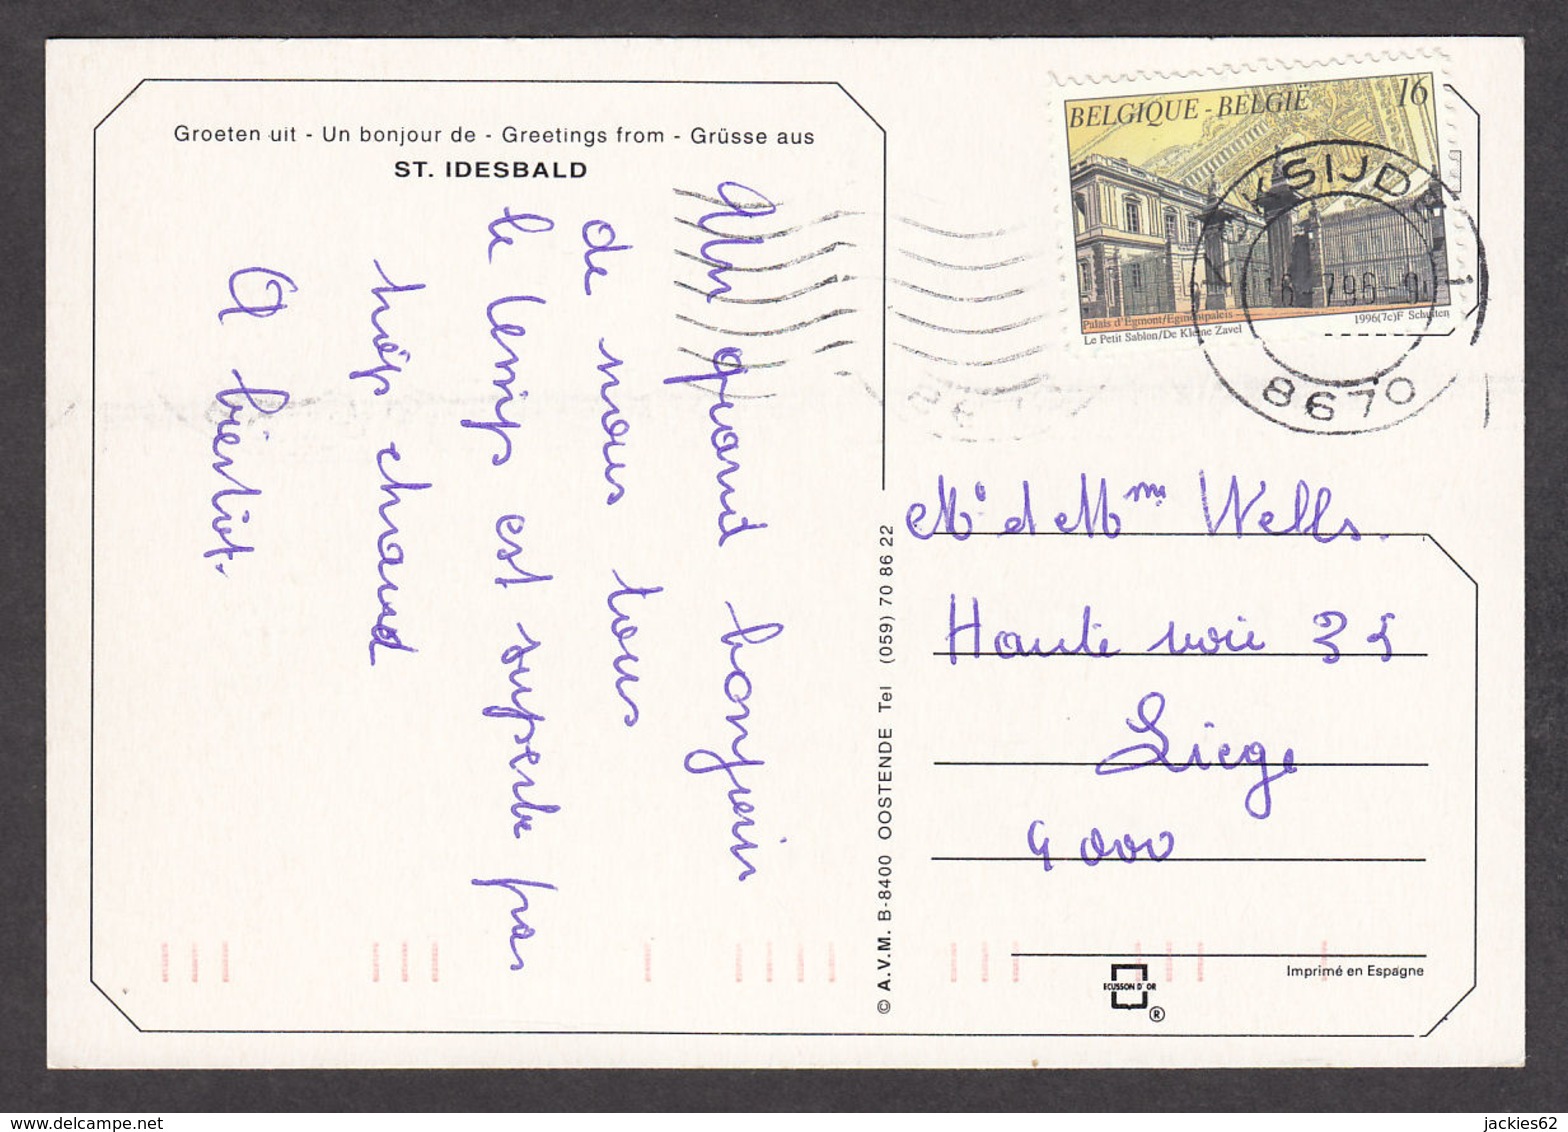 Groeten uit - Un bonjour de - Greetings from - Grüsse aus
ST. IDESBALD
Un grand bonjour
de nous tous
le temps est superbe pas
très chaud
A bientôt.
© A.V.M. B-8400 OOSTENDE Tel (059) 70 86 22
BELGIQUE - BELGIË 16
Palais d'Egmont/Egmontpaleis
Le Petit Sablon/De Kleine Zavel
1996(7c)F Schuiten
96
8670
1
Mr et Mme Wells.
Haute voie 35
Liege
4000
ECUSSON D'OR
®
Imprimé en Espagne
jackies62